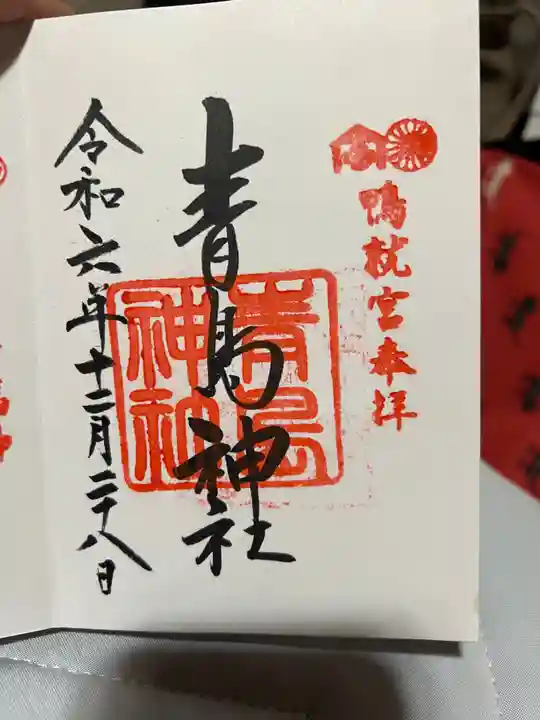 鴨就宮奉拝
青島神社
青島
神社
令和六年十二月二十八日